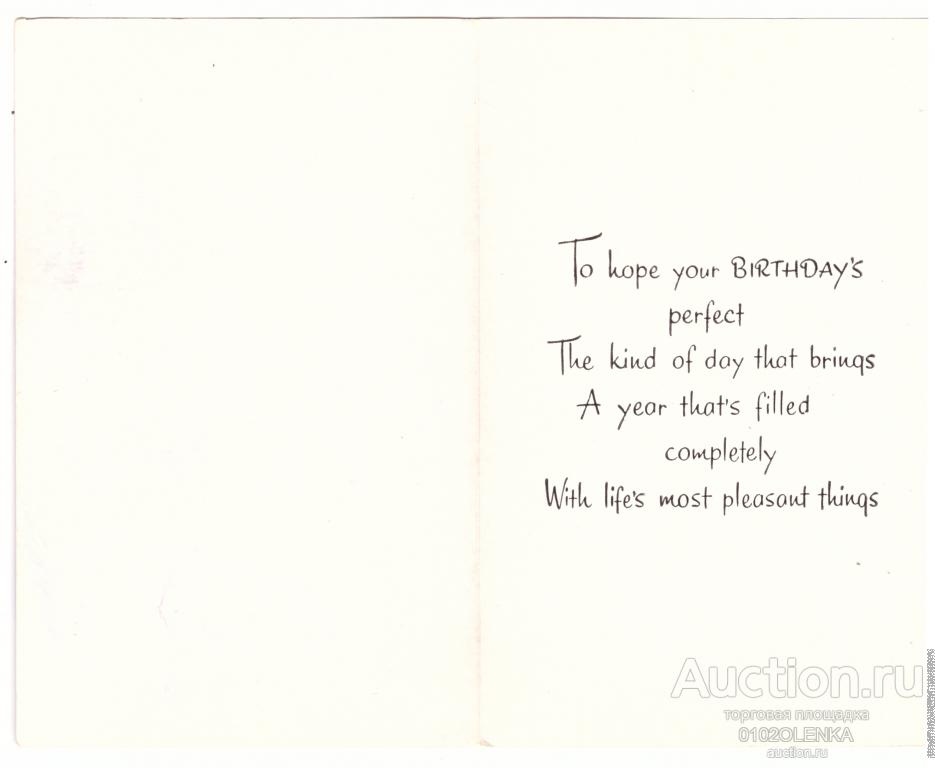 To hope your BIRTHDAY'S
perfect
The kind of day that brings
A year that's filled
completely
With life's most pleasant things
Auction.ru
торговая площадка
0102OLENKA
auction.ru